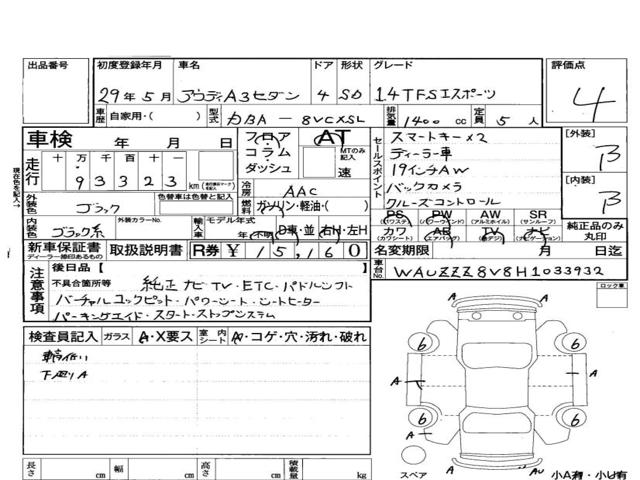 出品番号 初度登録年月 車名 ドア 形状 グレード 評価点
29年5月 アウディA3セダン 4 SD 1.4TFSIエスポーツ 4
車歴 自家用・( ) 型式 DBA-8VCXSL 排気量 1400 cc 定員 5 人
車検 年 月 日
フロア コラム ダッシュ
AT MTのみ記入 速
セールスポイント
スマートキー×2
ディーラー車
19インチAW
バックカメラ
クルーズコントロール
[外装] B
[内装] B
現在色を記入→
走行 十 万 千 百 十 一
93323 km
冷房 AAC
外装色 ブラック 色替車は色替と記入
燃料 ガソリン・軽油・( )
PS PW AW SR
(パワステ) (パワーウインド) (アルミホイル) (サンルーフ)
カワ AB TV ナビ
(カワシート) (エアバック) (デジ) (ナビゲーション)
純正品のみ丸印
内装色 ブラック系 外装カラーNo. 輸入車 モデル年式 年(不明) D車・並 右H・左H
新車保証書 取扱説明書 R券 ¥15,160
ディーラー捺印あるもの
名変期限 月 日迄
車台No. WAUZZZ8V8H1033932
ロック車
注意事項
後日品 [ ]
不具合箇所等 純正ナビ TV・ETC・パドルシフト
バーチャルコックピット・パワーシート・シートヒーター
パーキングエイド・スタートストップシステム
検査員記入 ガラス A・X要ス 室内シート A・コゲ・穴・汚れ・破れ
下廻りA
6 6
A A
6 6
A
A A AU
スペア 小A有・小U有
長さ cm 幅 cm 高さ cm 積載量 kg